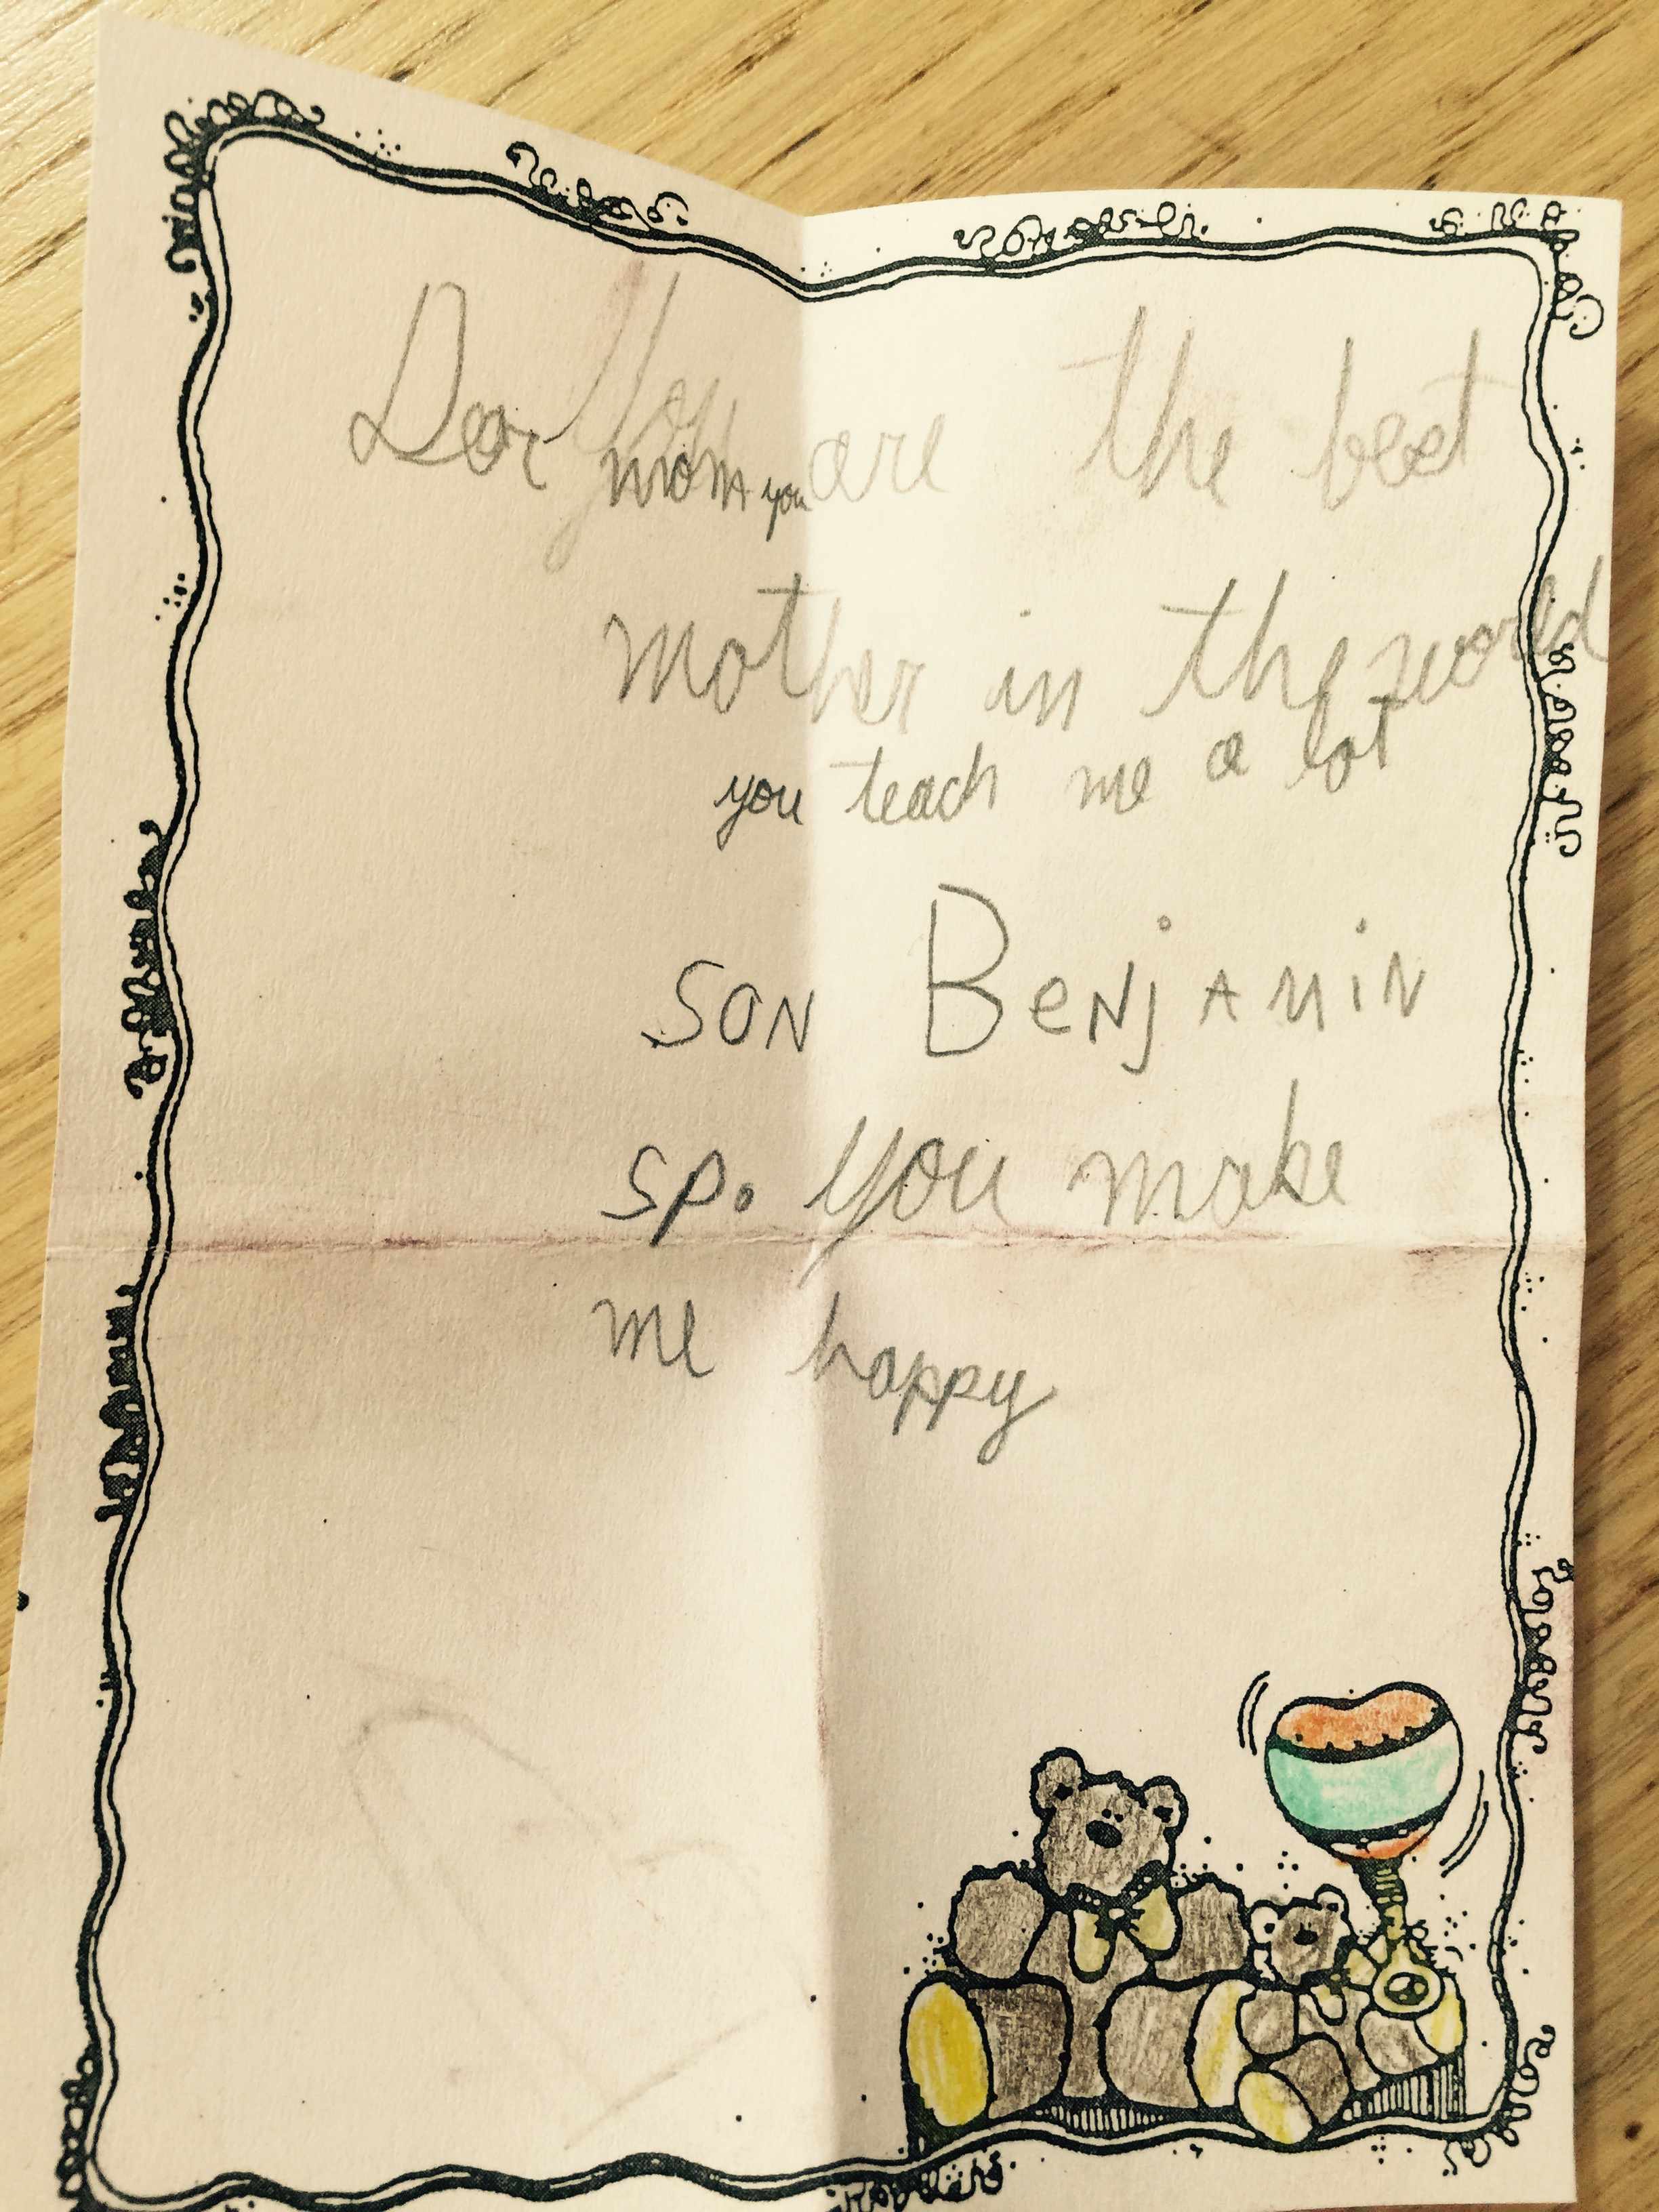 Dear mom you are the best
mother in the world
you teach me a lot
SON BeNjAMiN
sp. you make
me happy